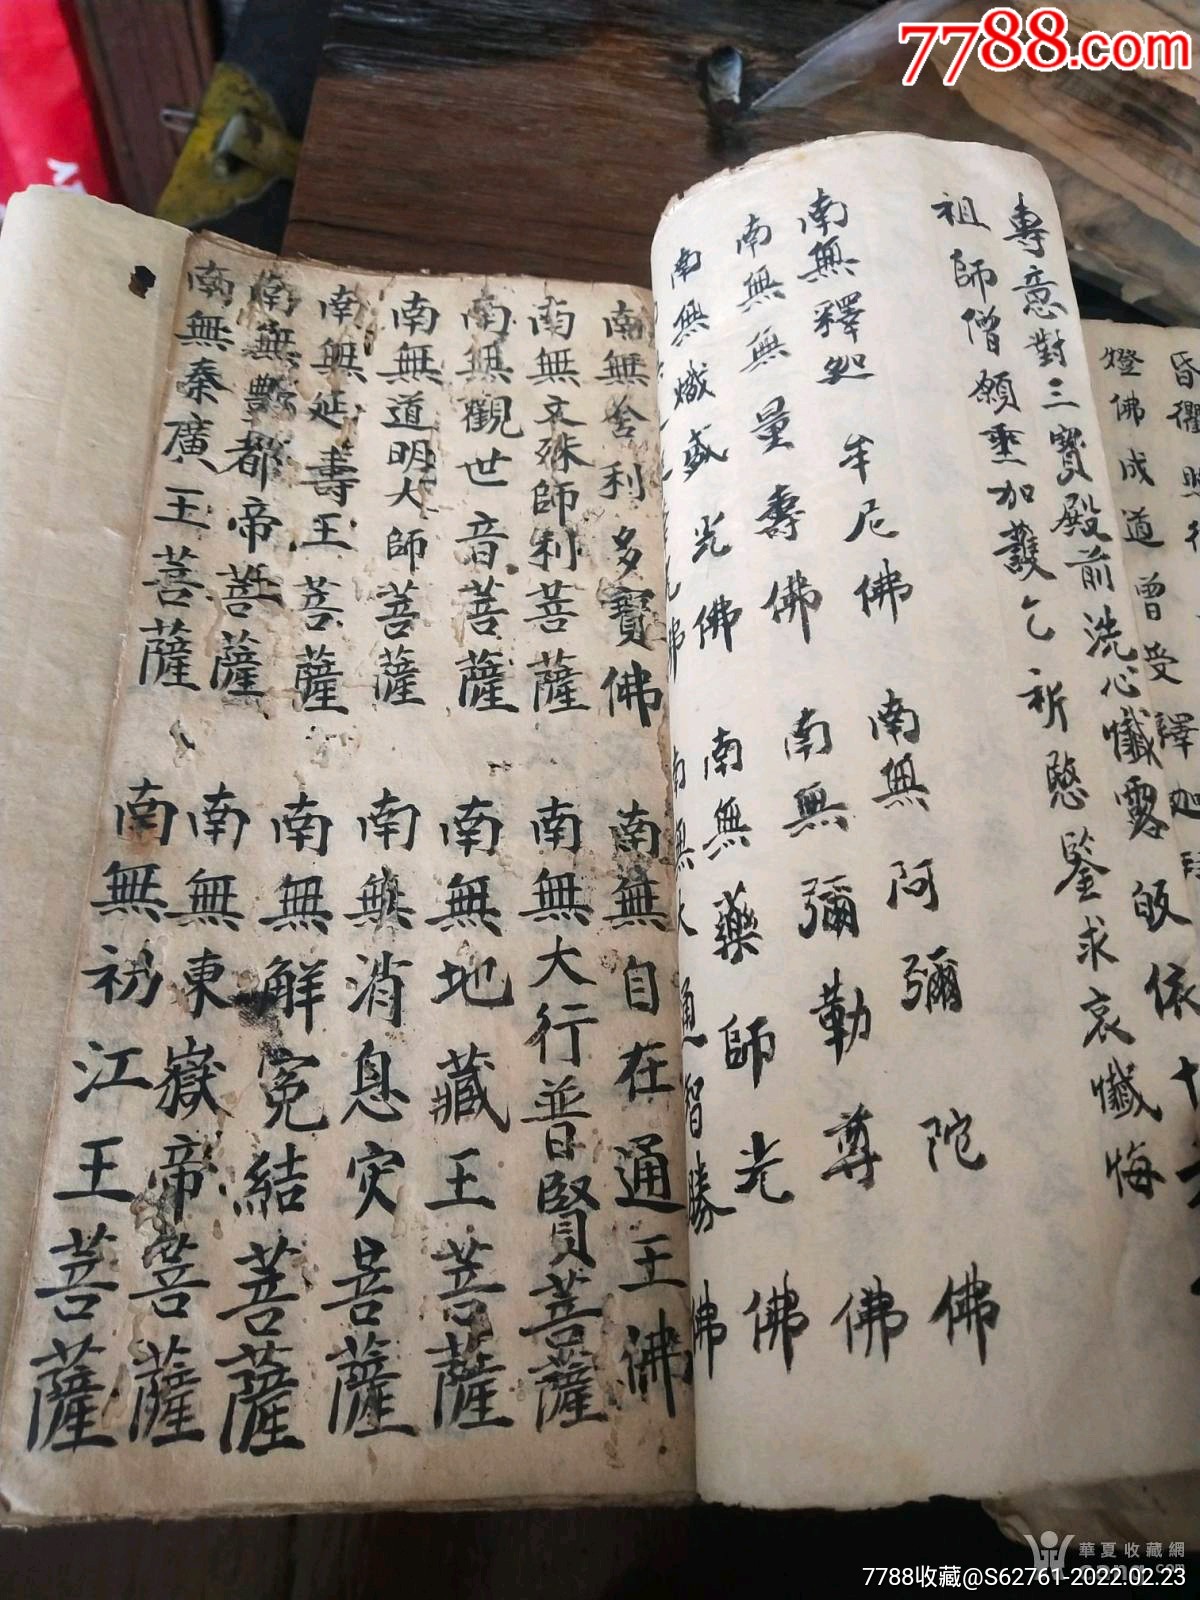 7788.com
昏衢照
燈佛成道曾受釋迦
專意對三寶殿前洗心懺露皈依十
祖師僧願垂加護乞祈愍鑒求哀懺悔
南無釋迦牟尼佛 南無阿彌陀佛
南無無量壽佛 南無彌勒尊佛
南無熾盛光佛 南無藥師光佛
佛 南無大通智勝佛
南無舍利多寶佛 南無自在通王佛
南無文殊師利菩薩 南無大行普賢菩薩
南無觀世音菩薩 南無地藏王菩薩
南無道明大師菩薩 南無消息灾菩薩
南無延壽王菩薩 南無解冤結菩薩
南無酆都帝菩薩 南無東嶽帝菩薩
南無秦廣王菩薩 南無初江王菩薩
華夏收藏網
cang.com
7788收藏@S62761-2022.02.23